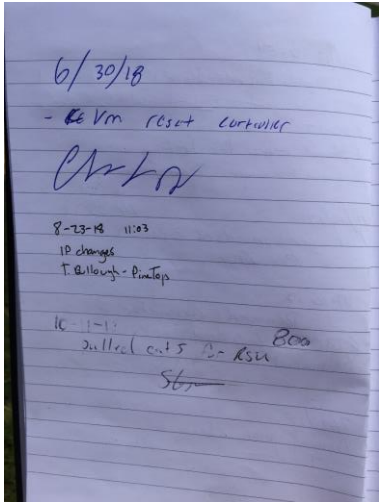 6/30/18
- Vm reset controller
8-23-18 11:03
IP changes
T. Bullough - PineTop
800
pulled cat 5 for RSU